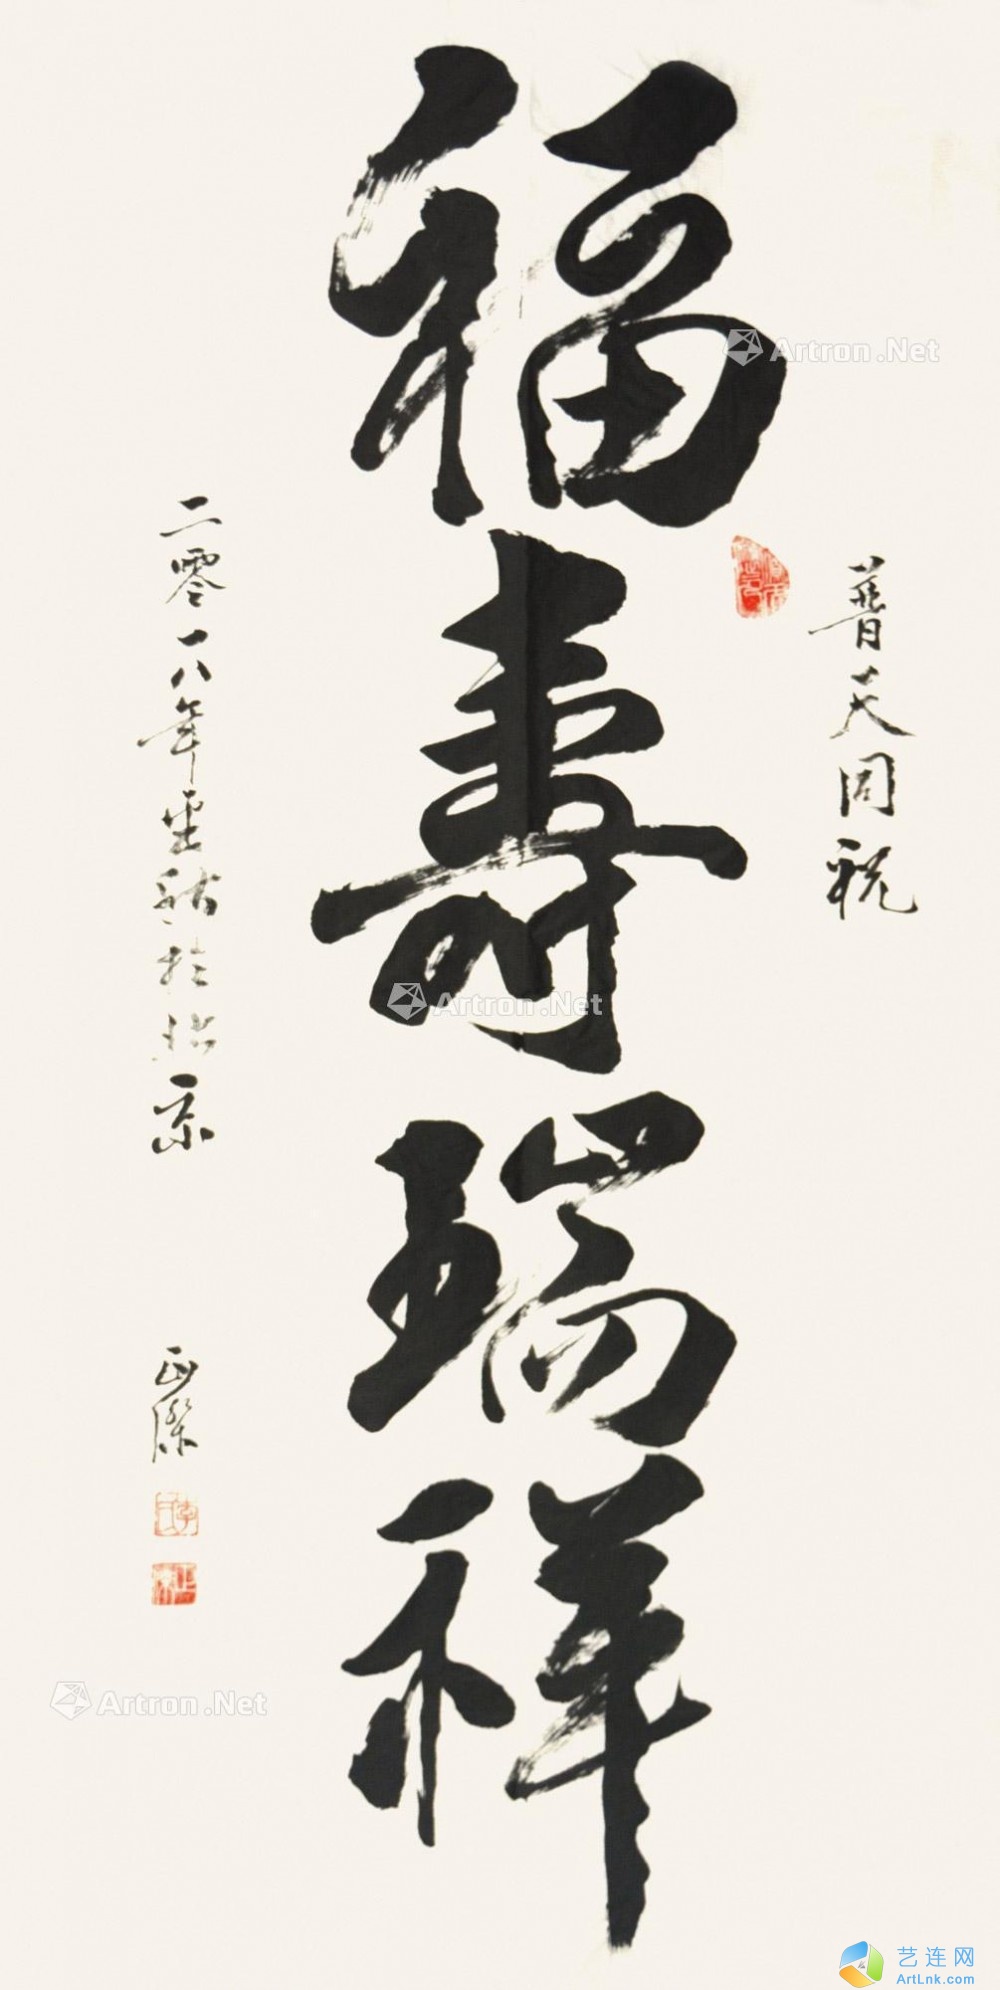 普天同祝
福壽瑞祥
二零一八年於北京
Artron.Net
Artron.Net
Artron.Net
艺连网
ArtLnk.com